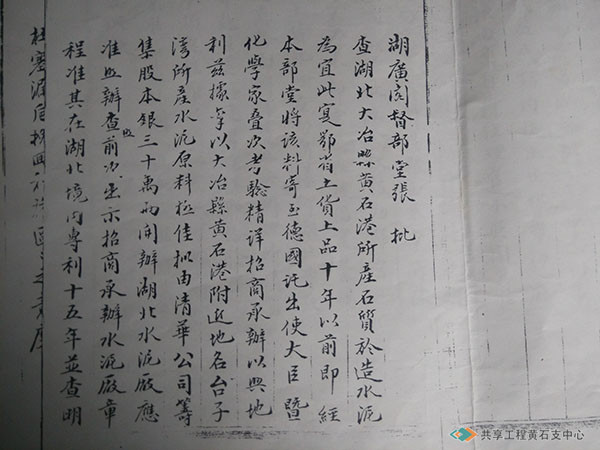 湖廣閣督部堂張 批
查湖北大冶縣黃石港所產石質於造水泥
為宜此寔鄂省土貨上品十年以前即經
本部堂將該料寄至德國託出使大臣暨
化學家叠次考驗精詳招商承辦以興地
利茲據稟以大冶縣黃石港附近地名台子
灣所產水泥原料極佳擬由清華公司籌
集股本銀三十萬兩開辦湖北水泥廠應
准照辦查前次出示招商承辦水泥廠章
程准其在湖北境內專利十五年並查明
共享工程黄石支中心